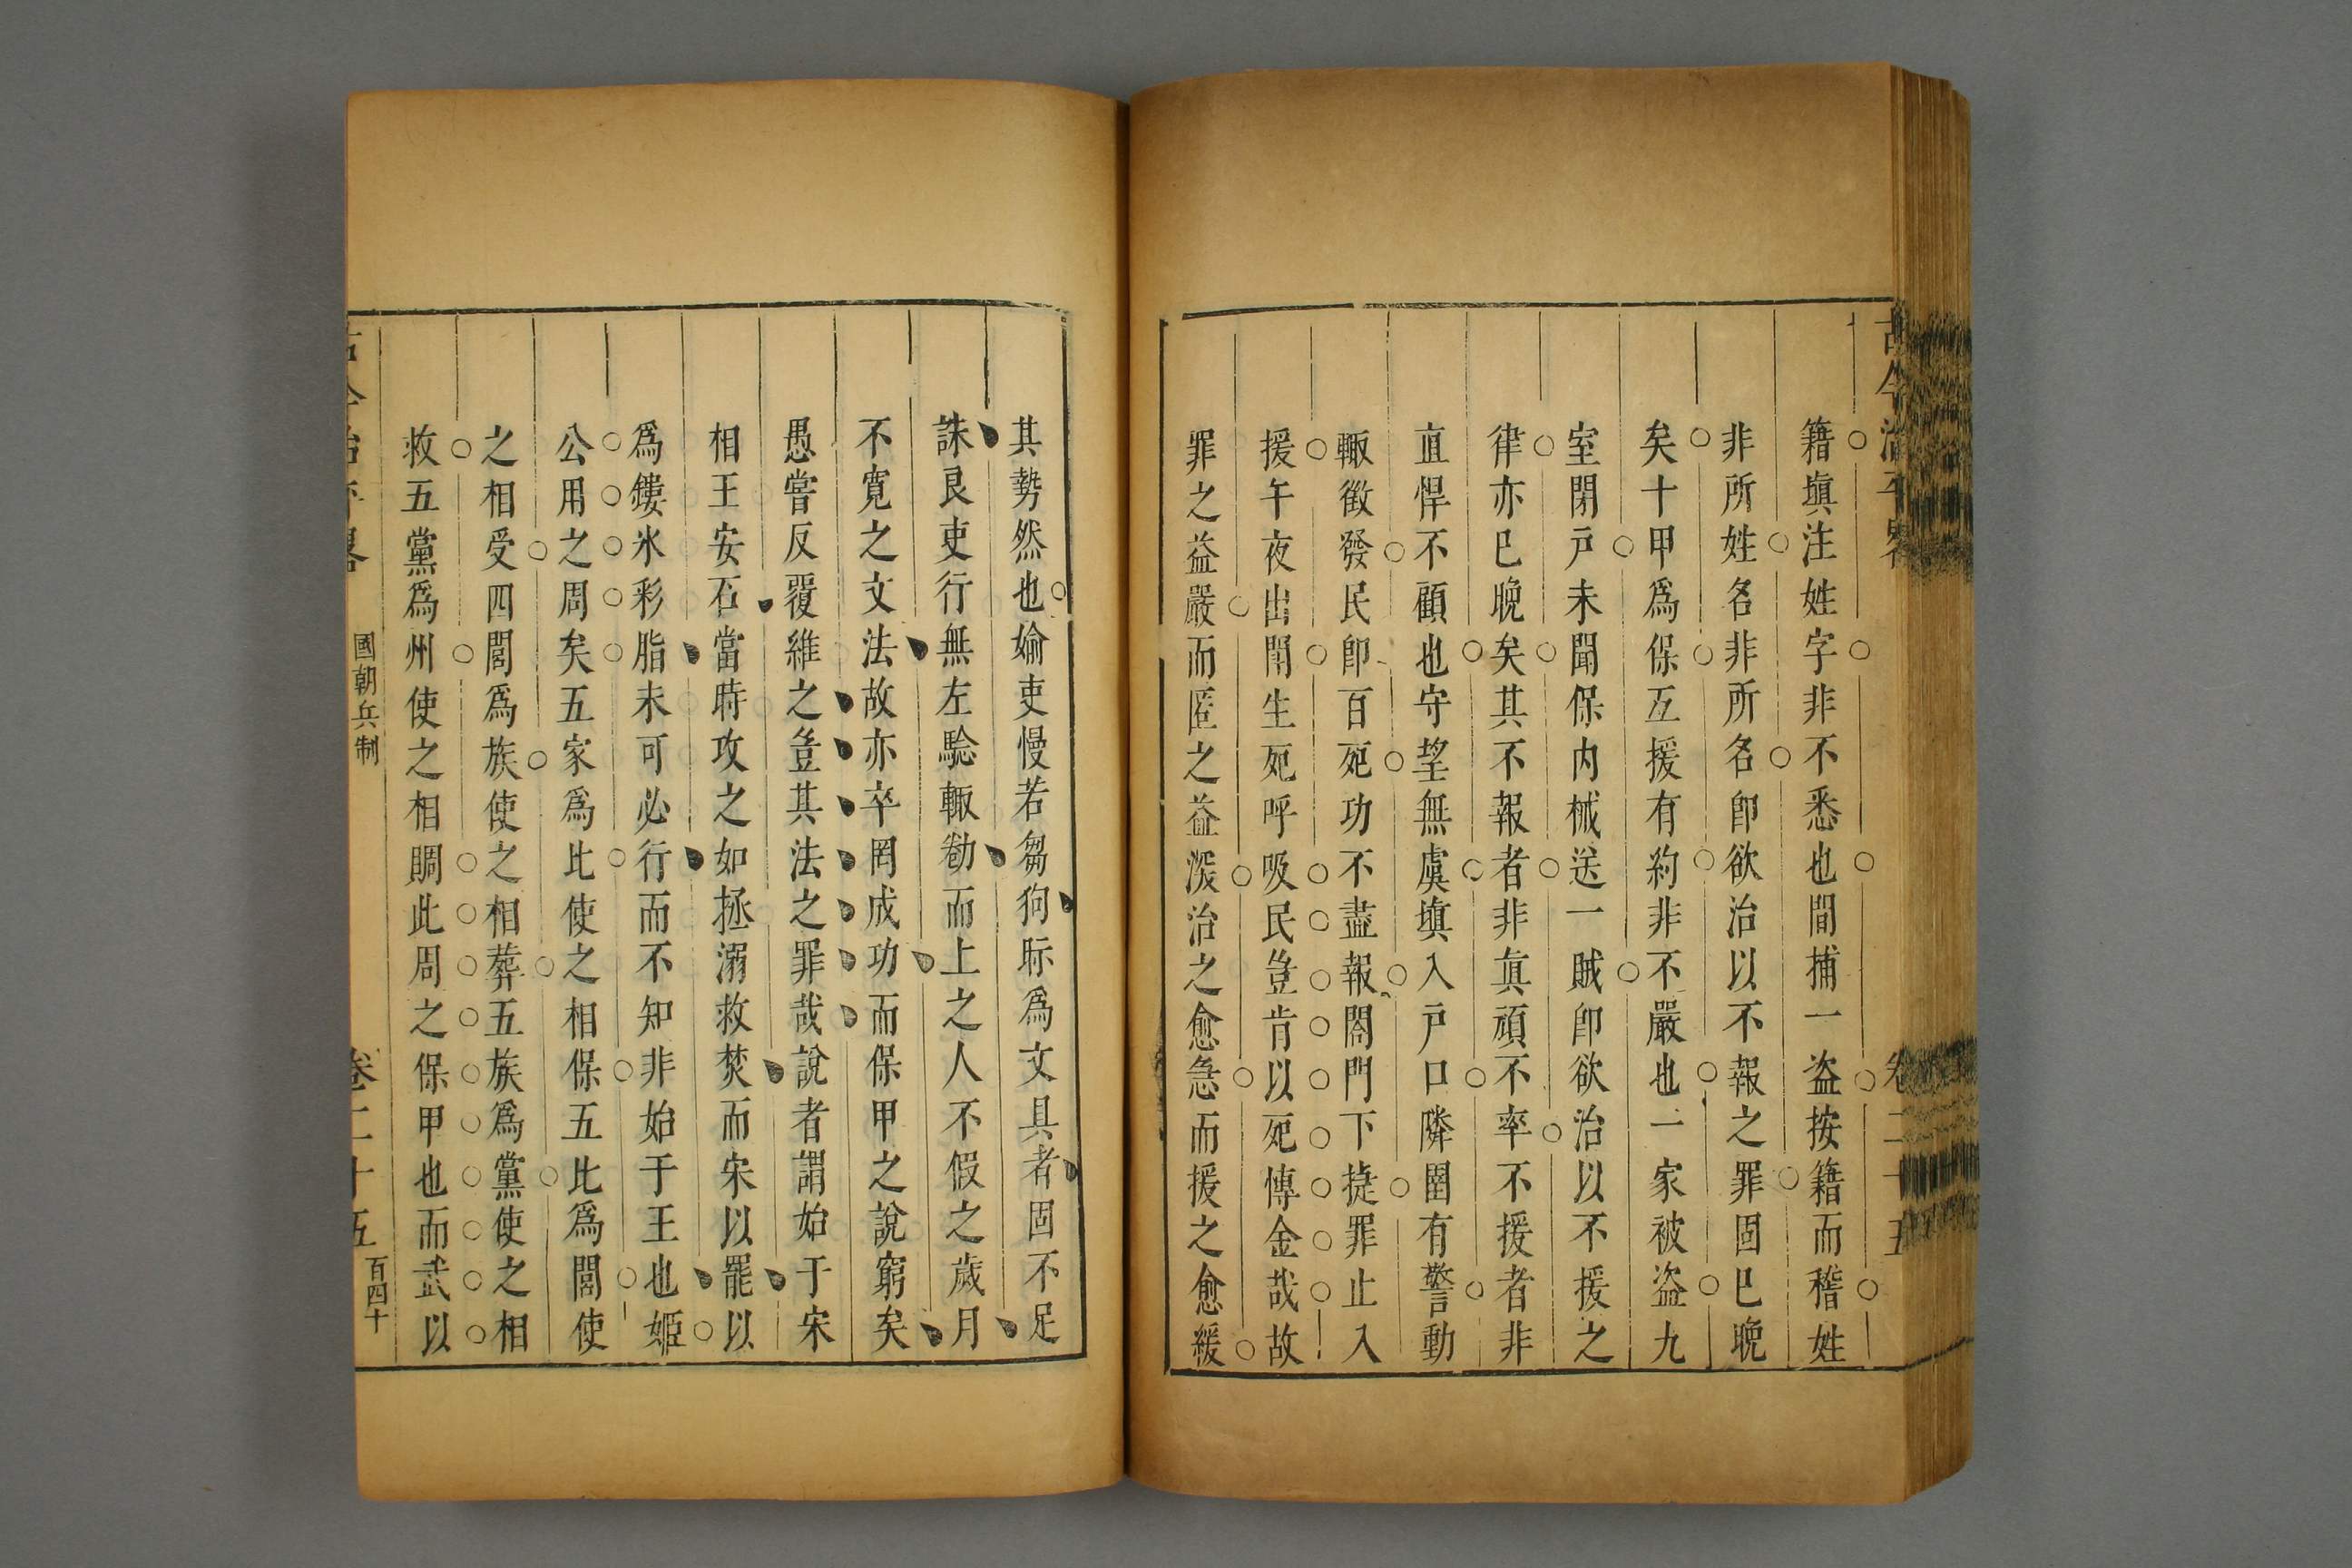 籍塡注姓字非不悉也間捕一盗按籍而稽姓
非所姓名非所名卽欲治以不報之罪固巳晩
矣十甲爲保互援有約非不嚴也一家被盗九
室閉戸未聞保内械送一賊卽欲治以不援之
律亦巳晩矣其不報者非眞頑不率不援者非
直悍不顧也守望無虞塡入戸口隣圉有警動
輙徴發民卽百死功不盡報閤門下㨗罪止入
援午夜出閈生死呼吸民豈肯以死愽金哉故
罪之益嚴而匿之益深治之愈急而援之愈緩
其勢然也婾吏慢若芻狗眎爲文具者固不足
誅良吏行無左驗輙勌而上之人不假之歲月
不寛之文法故亦卒罔成功而保甲之說窮矣
愚嘗反覆維之豈其法之罪哉說者謂始于宋
相王安石當時攻之如拯溺救焚而宋以罷以
爲鏤氷彩脂未可必行而不知非始于王也姬
公用之周矣五家爲比使之相保五比爲閭使
之相受四閭爲族使之相葬五族爲黨使之相
救五黨爲州使之相賙此周之保甲也而武以
國朝兵制
卷二十五
百四十